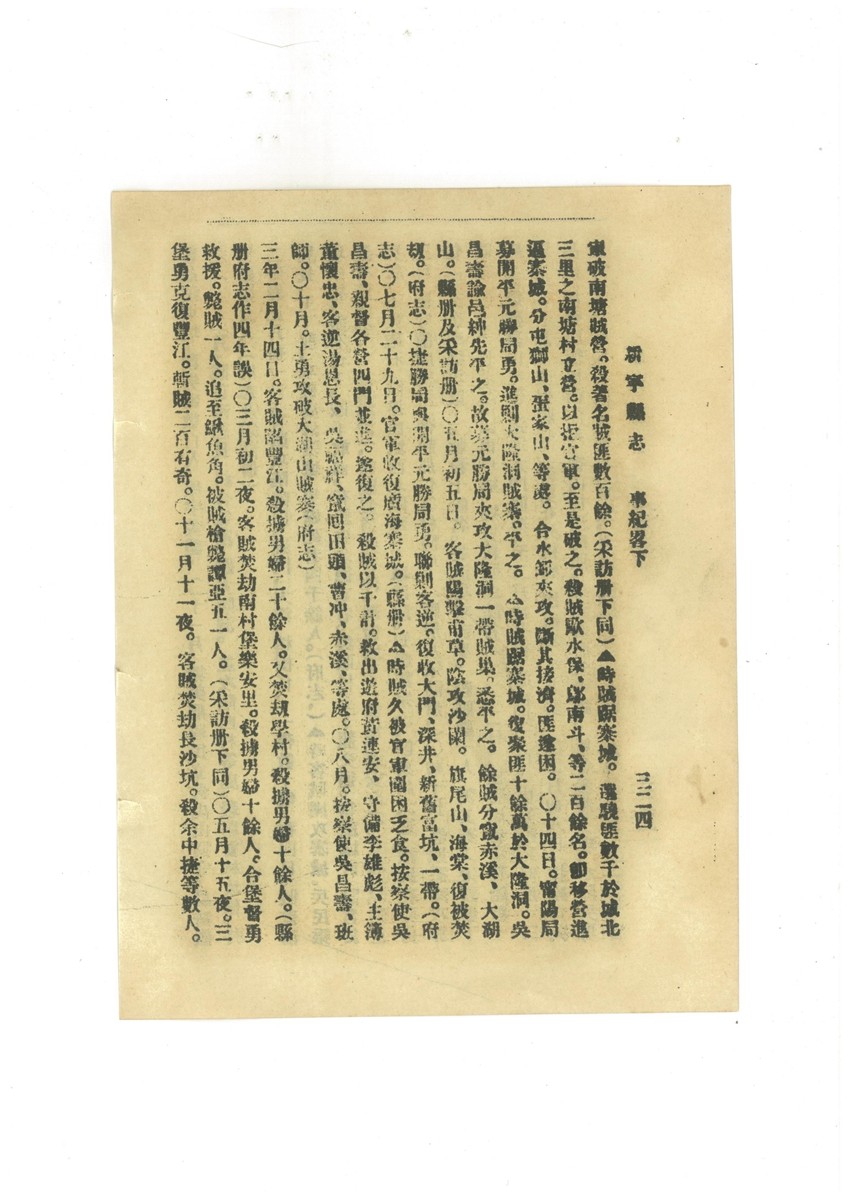 新寧縣志　事紀畧下　三二四
軍破南塘賊營。殺著名賊匪數百餘。(采訪册下同)▲時賊踞寨城。選驍匪數千於城北
三里之南塘村立營。以拒官軍。至是破之。殺賊歐水保、鄔南斗、等二百餘名。卽移營進
逼寨城。分屯獅山、蛋家山、等處。合水師夾攻。斷其接濟。匪遂困。〇十四日。甯陽局
募開平元勝局勇。進剿大隆洞賊寨。平之。▲時賊踞寨城。復聚匪十餘萬於大隆洞。吳
昌壽諭邑紳先平之。故募元勝局夾攻大隆洞一帶賊巢。悉平之。餘賊分竄赤溪、大湖
山。(縣册及采訪册)〇五月初五日。客賊陽擊甫草。陰攻沙闌。旗尾山、海棠、復被焚
刼。(府志)〇捷勝局與開平元勝局勇。聯剿客逆。復收大門、深井、新舊富坑、一帶。(府
志)〇七月二十九日。官軍收復廣海寨城。(縣册)▲時賊久被官軍圍困乏食。按察使吳
昌壽、親督各營四門並進。遂復之。殺賊以千計。救出遊府黃連安、守備李雄彪、主簿
董懷忠、客逆湯恩長、吳福祥、竄囘田頭、曹冲、赤溪、等處。〇八月。按察使吳昌壽、班
師。〇十月。土勇攻破大湖山賊寨(府志)
三年二月十四日。客賊陷豐江。殺擄男婦二十餘人。又焚刼學村。殺擄男婦十餘人。(縣
册府志作四年誤)〇三月初二夜。客賊焚劫南村堡樂安里。殺擄男婦十餘人。合堡督勇
救援。斃賊一人。追至鰍魚角。被賊槍斃譚亞五一人。(采訪册下同)〇五月十五夜。三
堡勇克復豐江。斬賊二百有奇。〇十一月十一夜。客賊焚劫長沙坑。殺余中捷等數人。